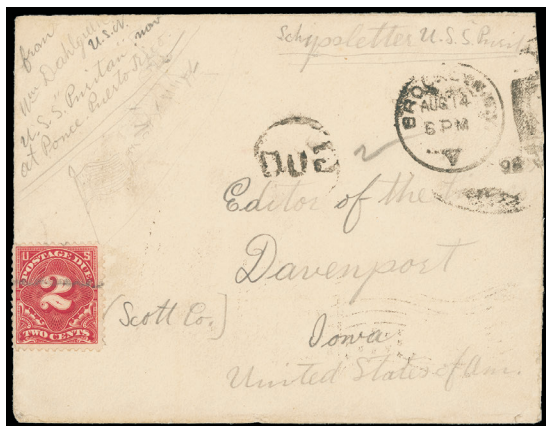 from
Wm Dahlgren
U.S.N.
U.S.S. Puritan, now
at Ponce, Puerto Rico
Schypsletter U.S.S. Purita
BROOKLYN, N.Y.
AUG 14
6 PM
V
98
DUE 2
Editor of the
Davenport
(Scott Co.)
Iowa
United States of Am.
U S
POSTAGE DUE
2
TWO CENTS